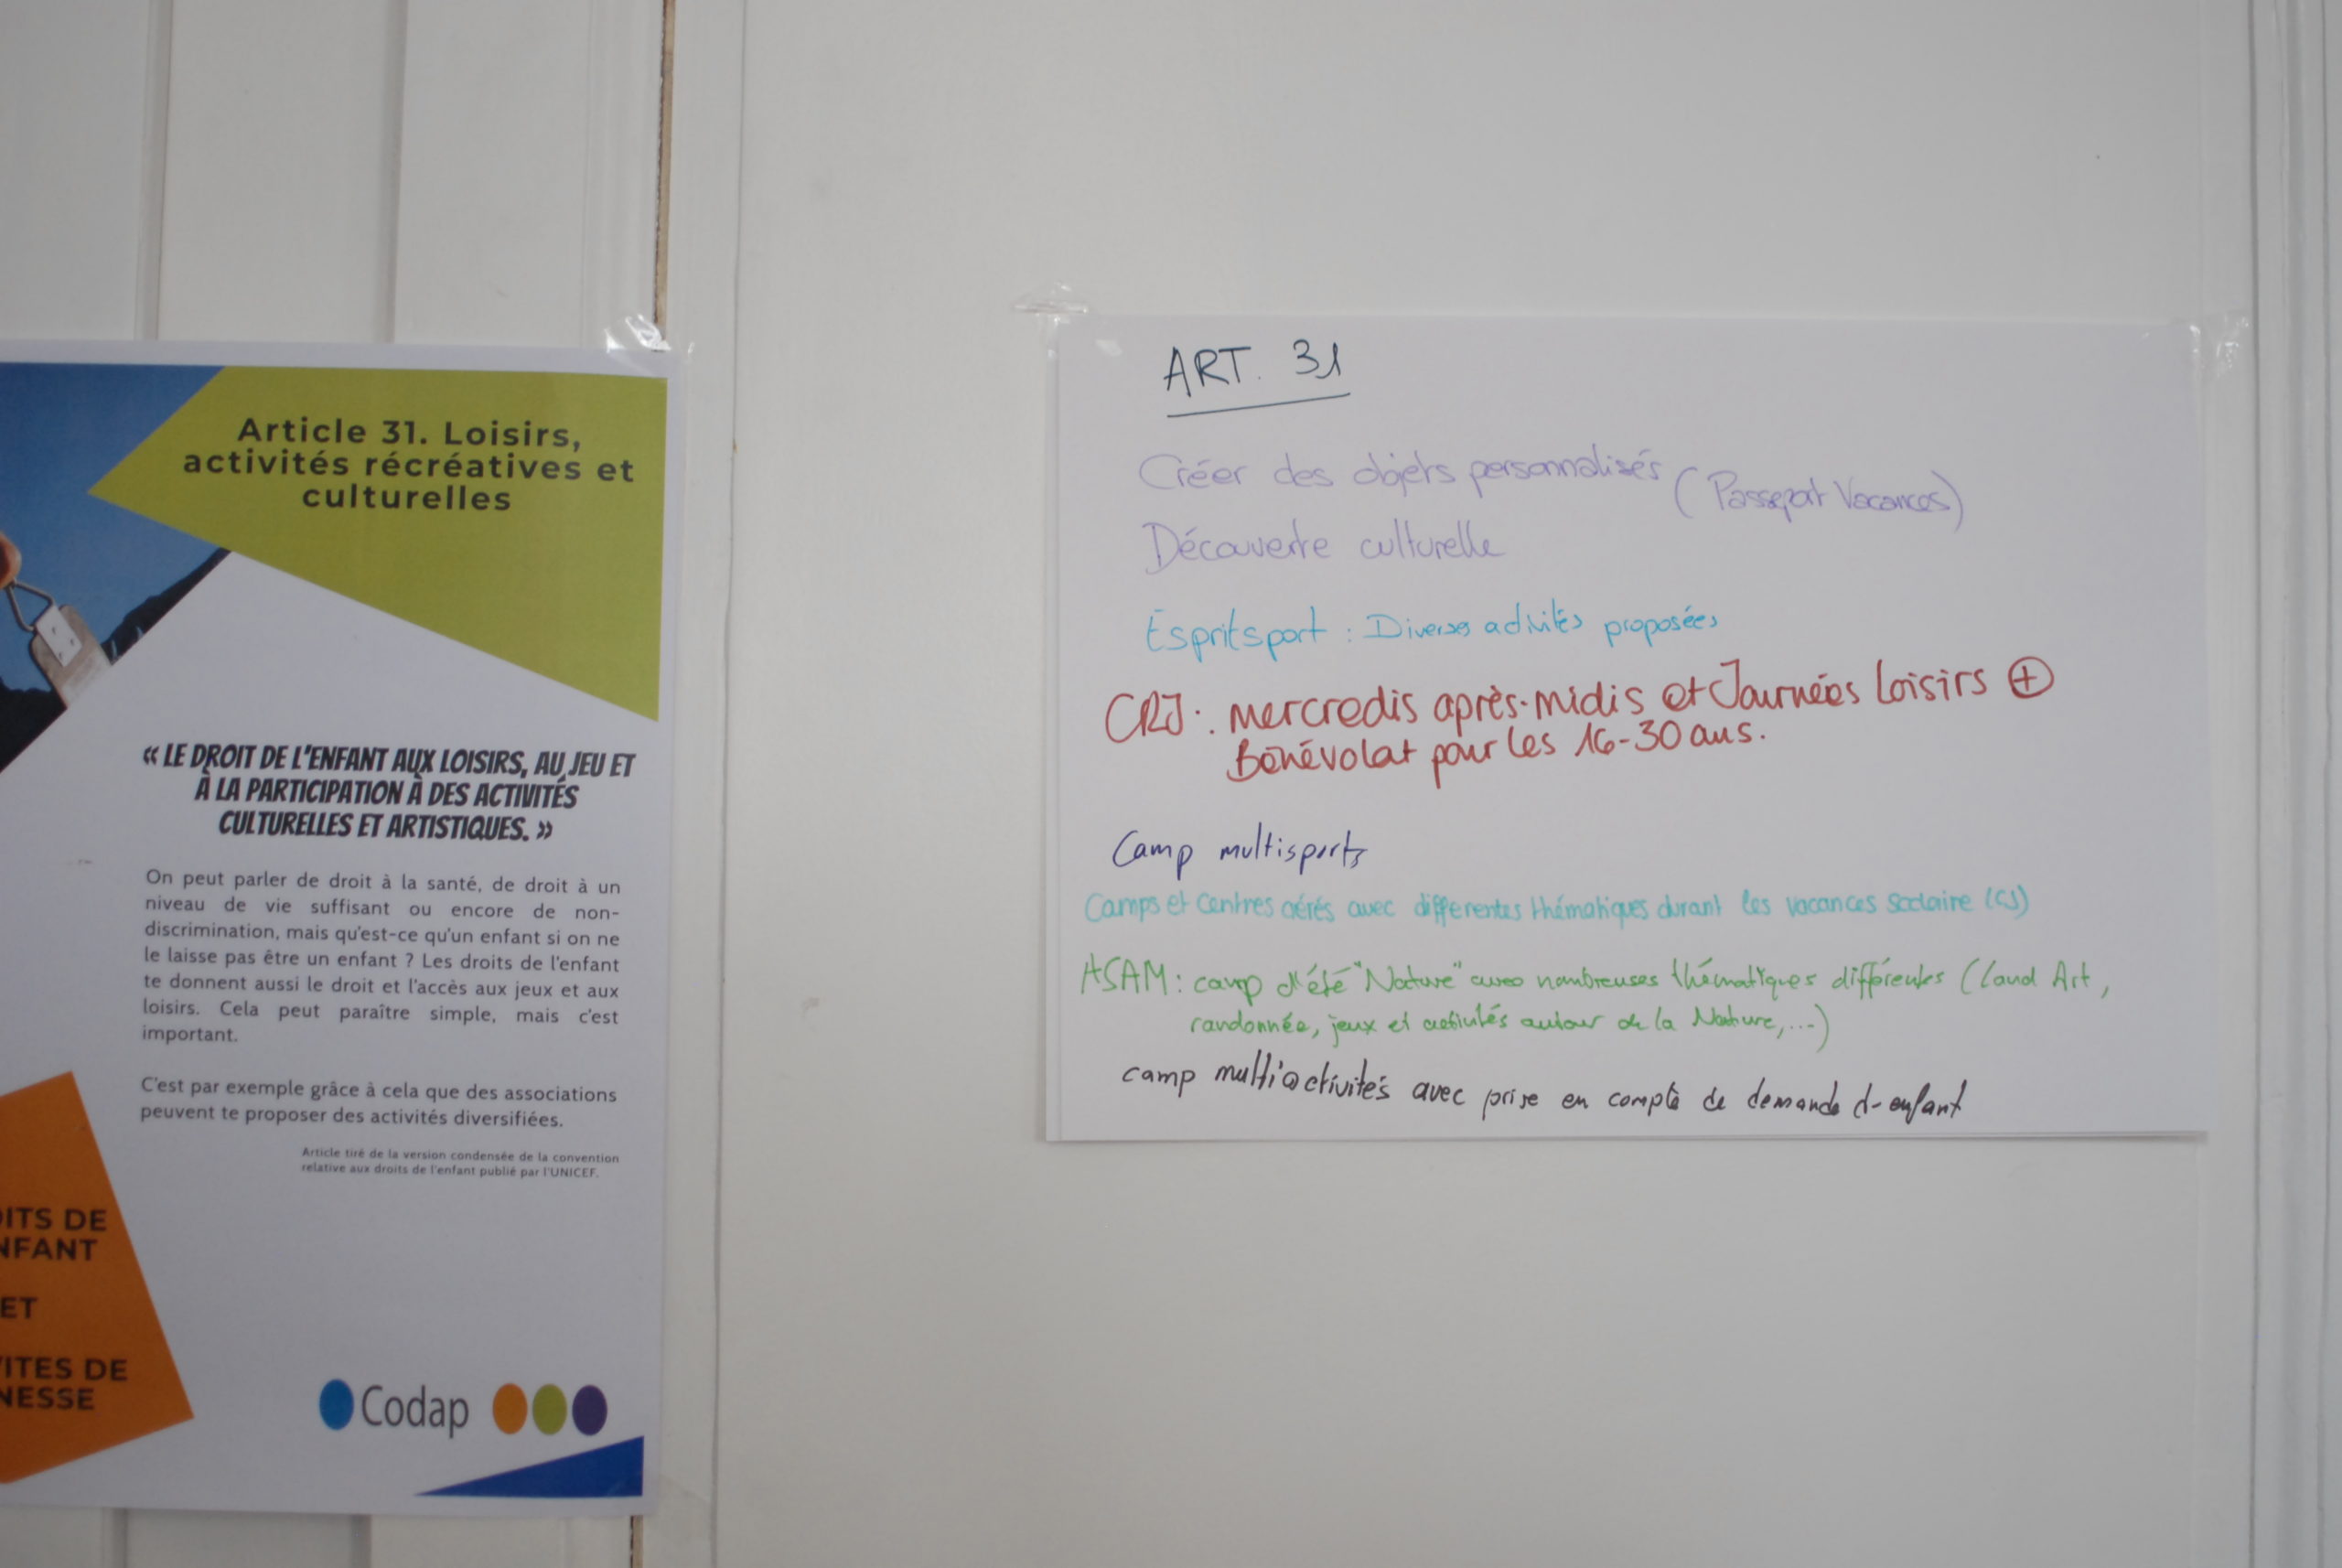 Article 31. Loisirs,
activités récréatives et
culturelles
« LE DROIT DE L'ENFANT AUX LOISIRS, AU JEU ET
À LA PARTICIPATION À DES ACTIVITÉS
CULTURELLES ET ARTISTIQUES. »
On peut parler de droit à la santé, de droit à un
niveau de vie suffisant ou encore de non-
discrimination, mais qu'est-ce qu'un enfant si on ne
le laisse pas être un enfant ? Les droits de l'enfant
te donnent aussi le droit et l'accès aux jeux et aux
loisirs. Cela peut paraître simple, mais c'est
important.
C'est par exemple grâce à cela que des associations
peuvent te proposer des activités diversifiées.
Article tiré de la version condensée de la convention
relative aux droits de l'enfant publié par l'UNICEF.
ITS DE
NFANT
ET
ITES DE
NESSE
Codap
ART. 31
Créer des objets personnalisés (Passeport Vacances)
Découverte culturelle
Espritsport : Diverses activités proposées
CRJ : mercredis après-midis et Journées Loisirs +
Bénévolat pour les 16-30 ans.
Camp multisports
Camps et Centres aérés avec differentes thématiques durant les vacances scolaire (CJ)
ASAM : camp d'été "Nature" avec nombreuses thématiques différentes (Land Art,
randonnée, jeux et activités autour de la Nature, ...)
camp multiactivités avec prise en compte de demande d-enfant